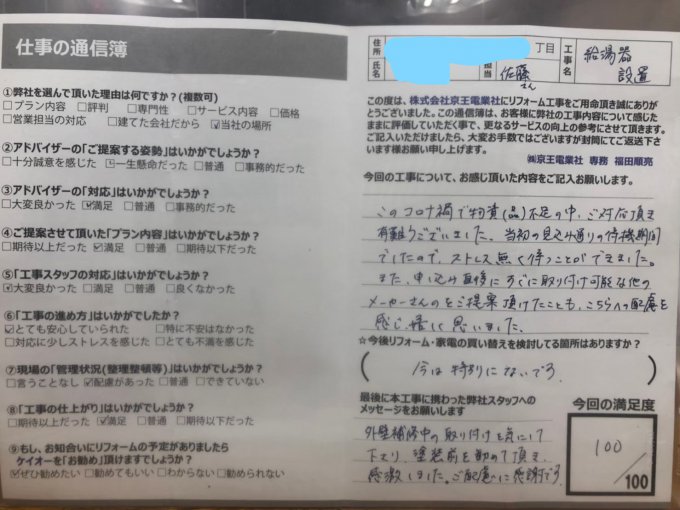 仕事の通信簿
①弊社を選んで頂いた理由は何ですか?(複数可)
□プラン内容 □評判 □専門性 □サービス内容 □価格
□営業担当の対応 □建てた会社だから ☑当社の場所
②アドバイザーの「ご提案する姿勢」はいかがでしょうか?
□十分誠意を感じた □一生懸命だった □普通 □事務的だった
③アドバイザーの「対応」はいかがでしょうか?
□大変良かった ☑満足 □普通 □事務的だった
④ご提案させて頂いた「プラン内容」はいかがでしょうか?
□期待以上だった ☑満足 □普通 □期待以下だった
⑤「工事スタッフの対応」はいかがでしょうか?
☑大変良かった □満足 □普通 □良くなかった
⑥「工事の進め方」はいかがでしたか?
☑とても安心していられた □特に不安はなかった
□対応に少しストレスを感じた □とても不満を感じた
⑦現場の「管理状況(整理整頓等)」はいかがでしょうか?
□言うことなし ☑配慮があった □普通 □できていない
⑧「工事の仕上がり」はいかがでしょうか?
□期待以上だった ☑満足 □普通 □期待以下だった
⑨もし、お知合いにリフォームの予定がありましたら
ケイオーを「お勧め」頂けますでしょうか?
☑ぜひ勧めたい □勧めてもいい □わからない □勧められない
住所
丁目
氏名
担当
佐藤さん
工事名
給湯器
設置
この度は、株式会社京王電業社にリフォーム工事をご用命頂き誠にありが
とうございました。この通信簿は、お客様に弊社の工事内容について感じた
ままに評価していただく事で、更なるサービスの向上の参考にさせて頂きます。
ご記入いただけましたら、大変お手数ではございますが封筒にてご返送下さ
います様お願い申し上げます。
㈱京王電業社 専務 福田順亮
今回の工事について、お感じ頂いた内容をご記入お願いします。
このコロナ禍で物資(品)不足の中、ご対応頂き
有難うございました。当初の見込み通りの待機期間
でしたので、ストレス無く待つことができました。
また、申し込み直後にすぐに取り付け可能な他の
メーカーさんのをご提案頂けたことも、こちらへの配慮を
感じ嬉しく思いました。
☆今後リフォーム・家電の買い替えを検討してる箇所はありますか?
(今は特別にないです。)
最後に本工事に携わった弊社スタッフへの
メッセージをお願いします
外壁補修中の取り付けを気にして
下さり、塗装前を勧めて頂き
感激しました。ご配慮に感謝です。
今回の満足度
100
/100